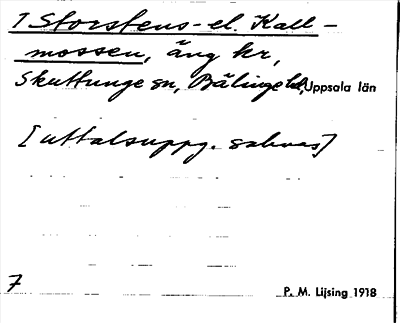 1 Storstens- el. Kall-
mossen, äng kr,
Skuttunge sn, Bälinge hd, Uppsala län
[uttalsuppg. saknas]
7
P. M. Lijsing 1918